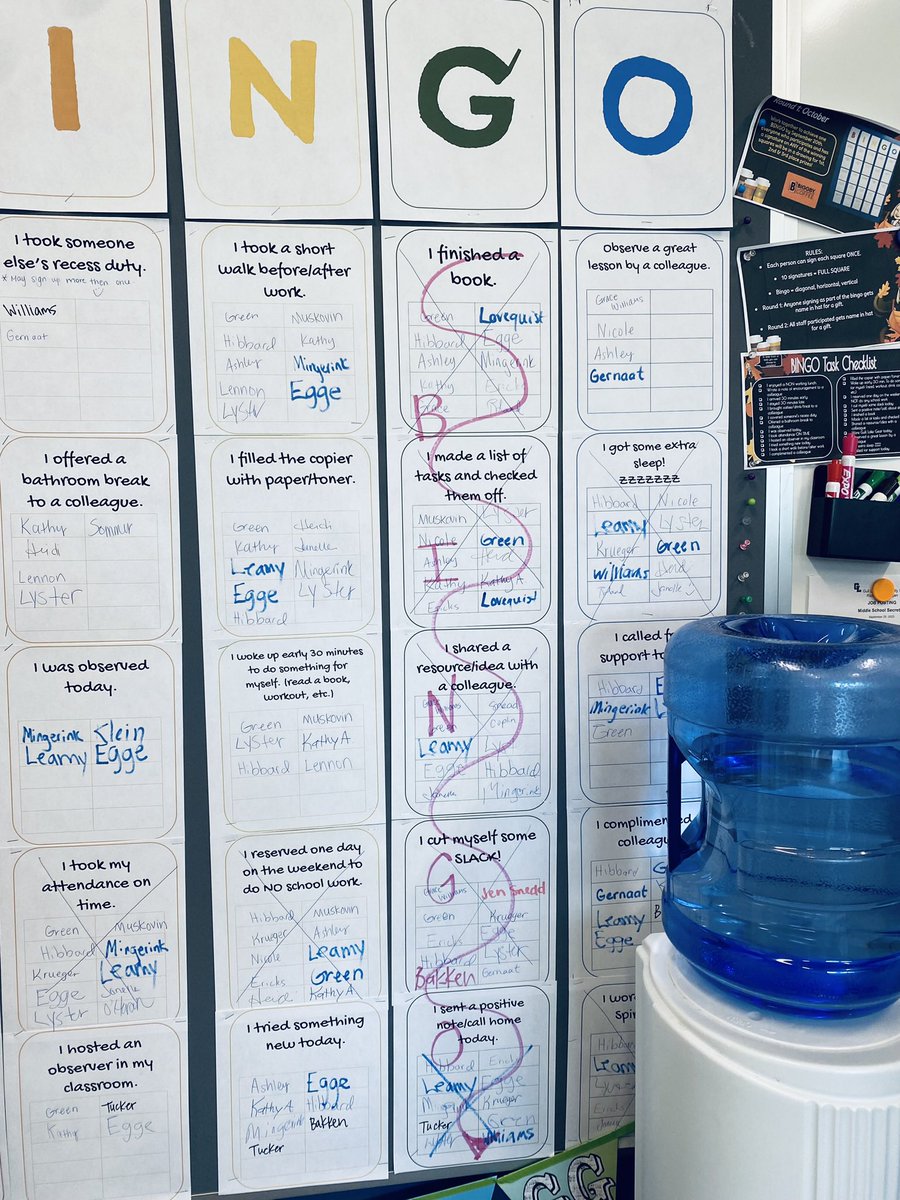 I
N
G
O
I took someone
else's recess duty.
* May sign up more then one
Williams
Gernaat
I offered a
bathroom break
to a colleague.
Kathy Sommer
Heidi
Lennon
Lyster
I was observed
today.
Mingerink Klein
Leamy Egge
I took my
attendance on
time.
Green Muskovin
Hibbard Mingerink
Krueger Leamy
Egge Janelle
Lyster
I hosted an
observer in my
classroom.
Green Tucker
Kathy Egge
I took a short
walk before/after
work.
Green Muskovin
Hibbard Kathy
Ashley Mingerink
Lennon Egge
Lyster
I filled the copier
with paper/toner.
Green Heidi
Kathy Janelle
Leamy Mingerink
Egge Lyster
Hibbard
I woke up early 30 minutes
to do something for
myself. (read a book,
workout, etc.)
Green Muskovin
Lyster Kathy A.
Hibbard Lennon
I reserved one day
on the weekend to
do NO school work.
Hibbard Muskovin
Krueger Ashley
Nicole Leamy
Ericks Green
Heidi Kathy A.
I tried something
new today.
Ashley Egge
Kathy A Hibbard
Mingerink Bakken
Tucker
I finished a
book.
Green Lovequist
Hibbard Egge
Ashley Mingerink
Kathy Erick
B
I made a list of
tasks and checked
them off.
Muskovin Lyster
Nicole Green
Ashley Heidi
Kathy Kathy A
Ericks Lovequist
I
I shared a
resource/idea with
a colleague.
Williams Snedd
Green Coplin
Leamy Lys
Egge Hibbard
Janelle Mingerink
N
I cut myself some
SLACK!
Grace Williams Jen Snedd
Green Krueger
Erick Egge
Hibbard Lyster
Bakken Gernaat
G
I sent a positive
note/call home
today.
Hibbard Erick
Leamy Egge
Krueger
Tucker Green
Lyster Williams
O
Observe a great
lesson by a colleague.
Grace Williams
Nicole
Ashley
Gernaat
I got some extra
sleep!
ZZZZZZZ
Hibbard Nicole
Leamy Lyster
Krueger Green
Williams Heidi
Janelle J
I called f
support to
Hibbard E
Mingerink L
Green
I complimen
colleagu
Hibbard G
Gernaat
Leamy
Egge
I wor
spir
Leam
Lyste
Ericks
Round 1: October
Work together to achieve one
BINGO by September 30th.
Everyone who participates and has
a signature on ANY of the winning
squares will be in a drawing for 1st,
2nd & 3rd place prizes!
BIGGBY
COFFEE
RULES:
Each person can sign each square ONCE.
10 signatures = FULL SQUARE
Bingo = diagonal, horizontal, vertical
Round 1: Anyone signing as part of the bingo gets
name in hat for a gift.
Round 2: All staff participated gets name in hat
for a gift.
BINGO Task Checklist
EXPO
JOB POSTING
Middle School Secret